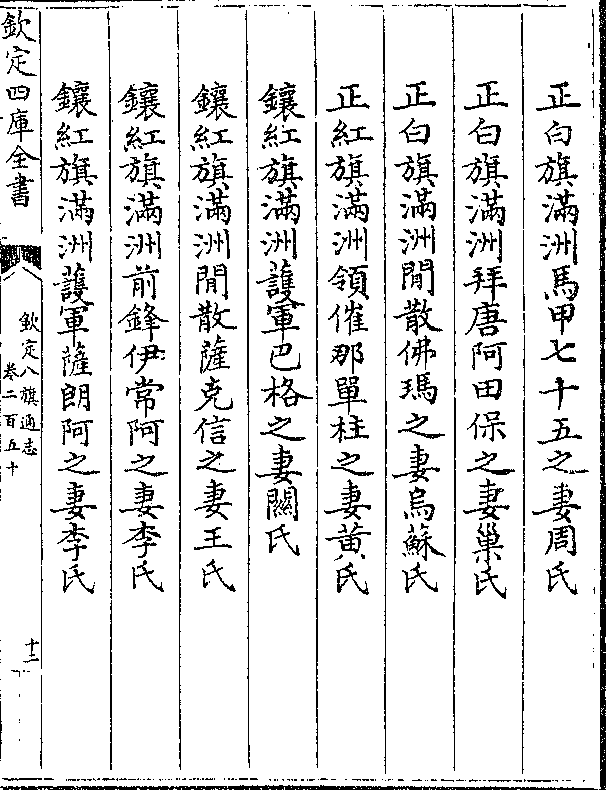 正白旗滿洲馬甲七十五之妻周氏
正白旗滿洲拜唐阿田保之妻巢氏
正白旗滿洲閒散佛瑪之妻烏蘇氏
正紅旗滿洲領催那單柱之妻黃氏
鑲紅旗滿洲護軍巴格之妻關氏
鑲紅旗滿洲閒散薩克信之妻王氏
鑲紅旗滿洲前鋒伊常阿之妻李氏
鑲紅旗滿洲護軍薩朗阿之妻李氏
欽定四庫全書
欽定八旗通志
卷二百五十
十二